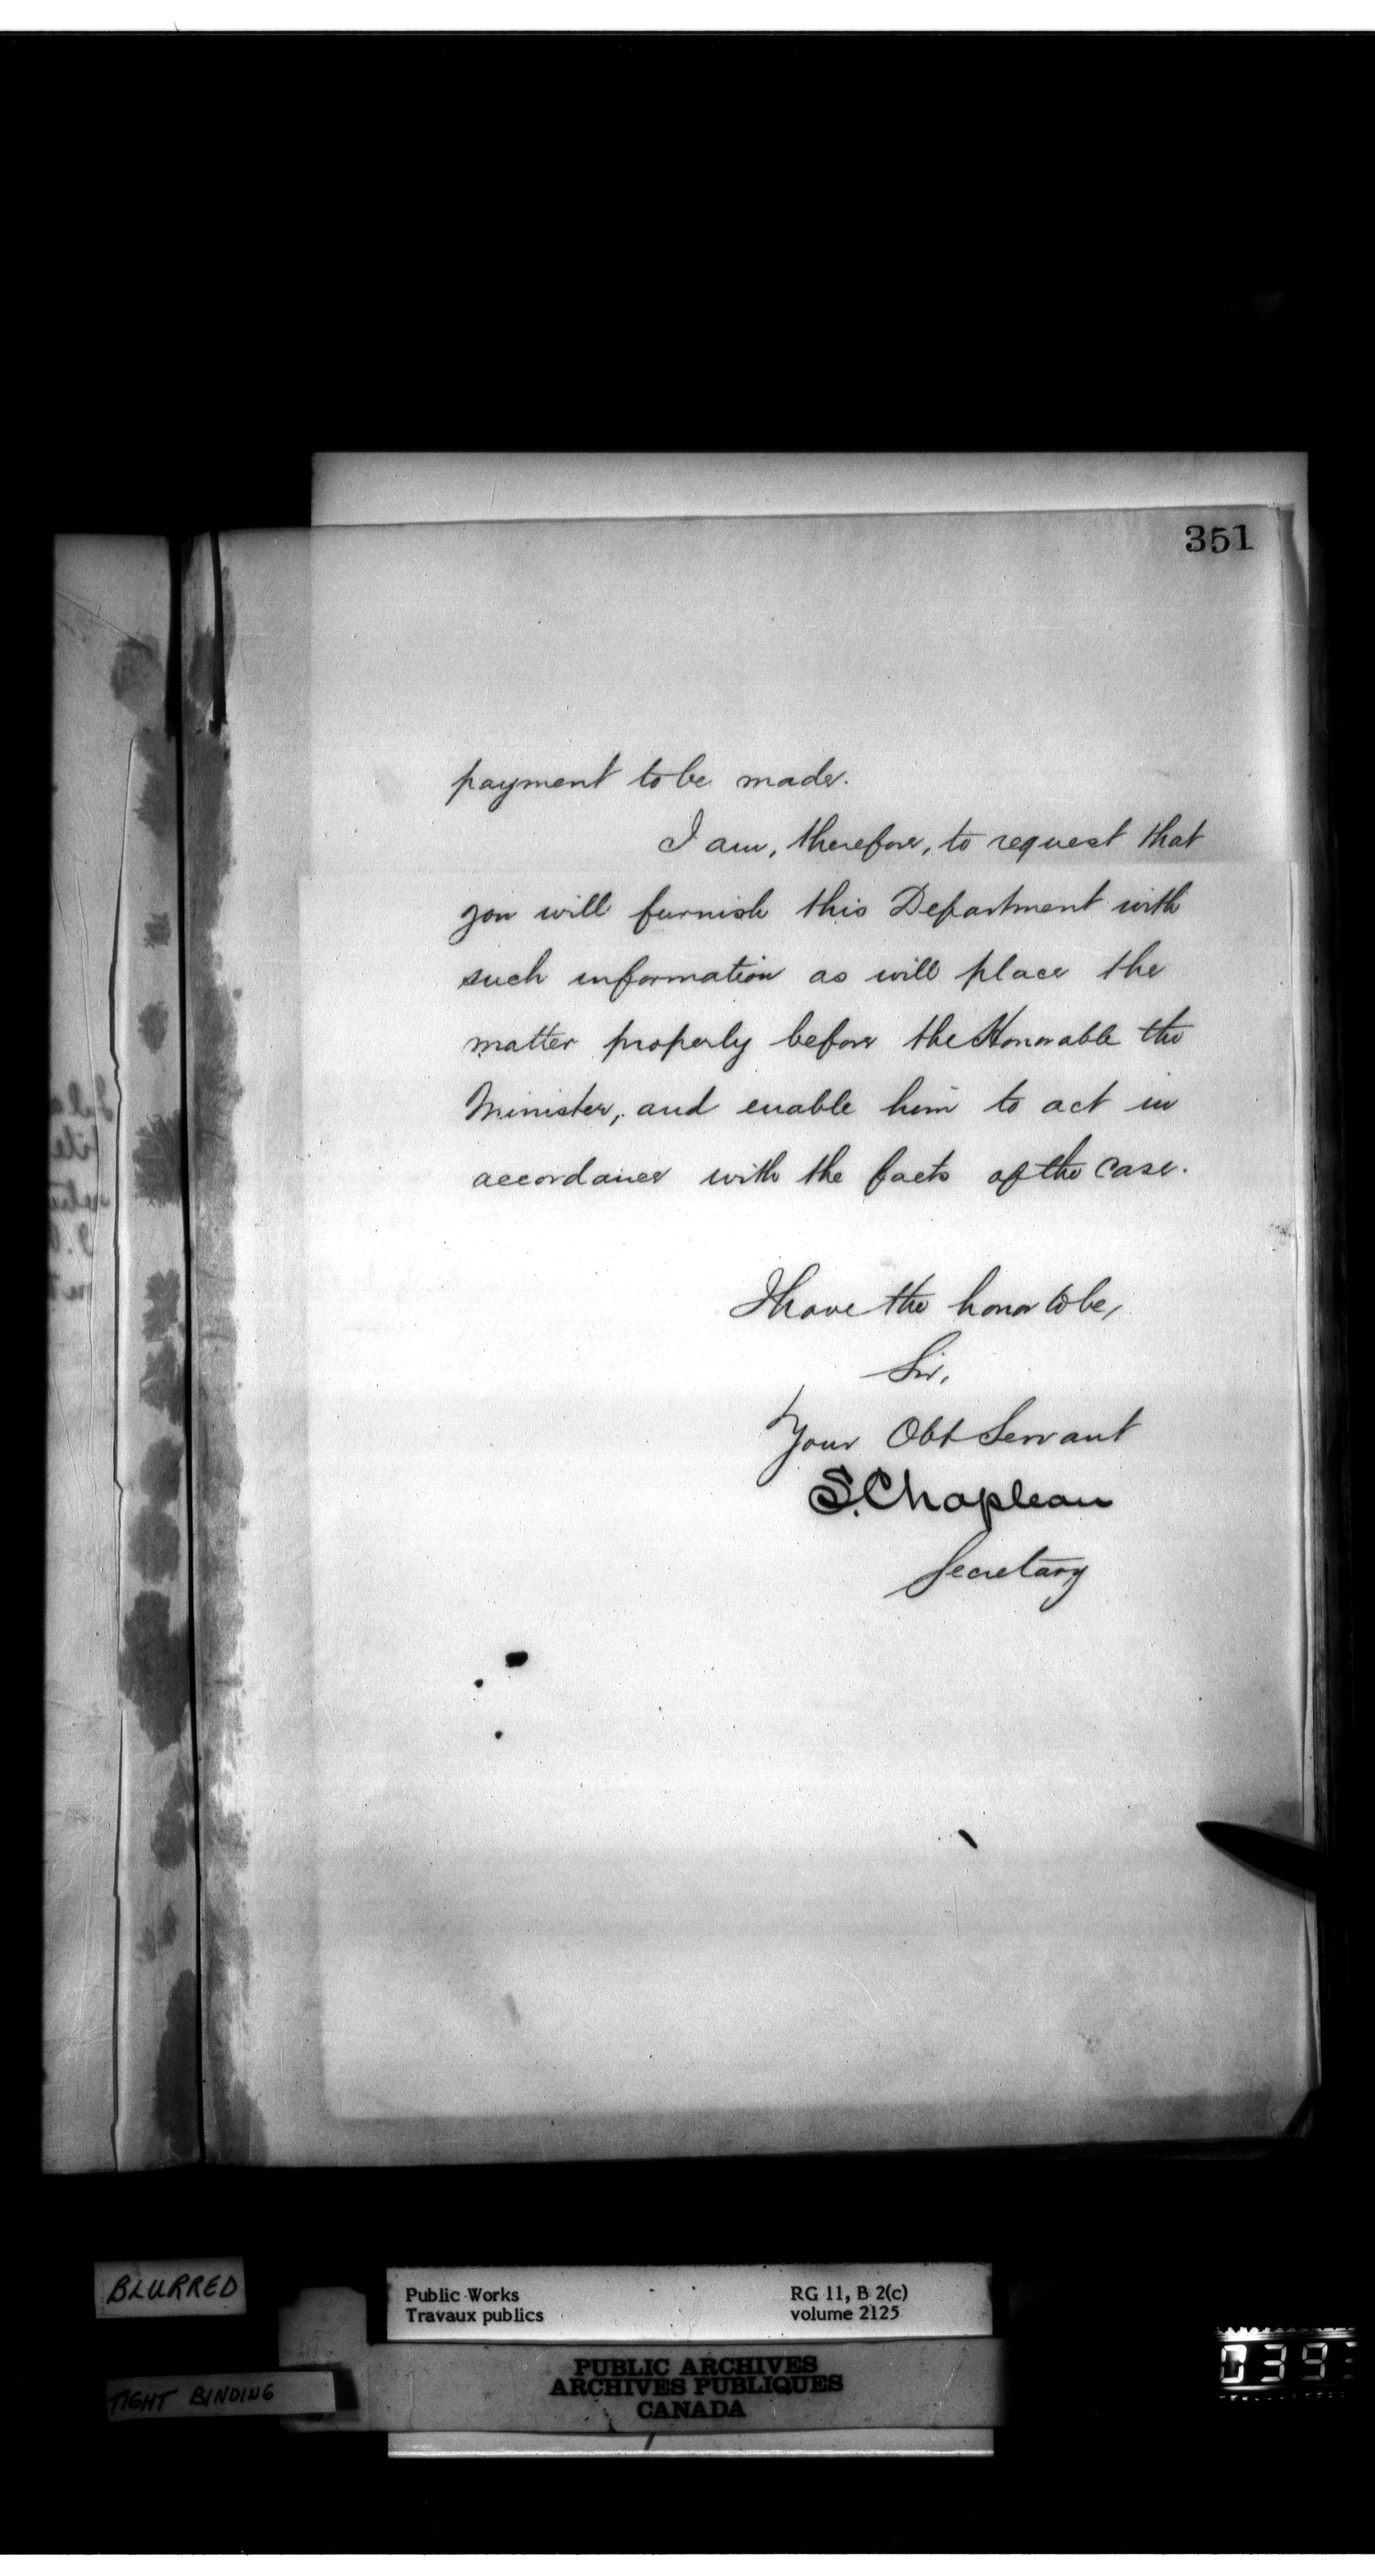 351
payment to be made.
I am, therefore, to request that
you will furnish this Department with
such information as will place the
matter properly before the Honorable the
Minister, and enable him to act in
accordance with the facts of the case.
I have the honor to be,
Sir,
Your Obt Servant
S. Chapleau
Secretary
BLURRED
TIGHT BINDING
Public Works
Travaux publics
RG 11, B 2(c)
volume 2125
PUBLIC ARCHIVES
ARCHIVES PUBLIQUES
CANADA
039